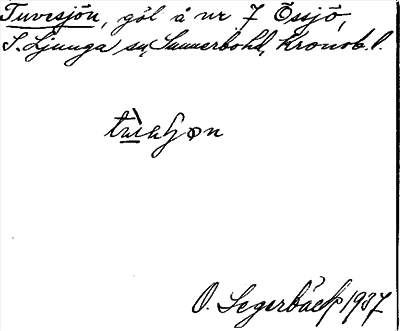 Tuvesjön, göl å nr 7 Össjö,
S. Ljunga sn, Sunnerbohd, Kronob. l.
O. Segerbäck 1937